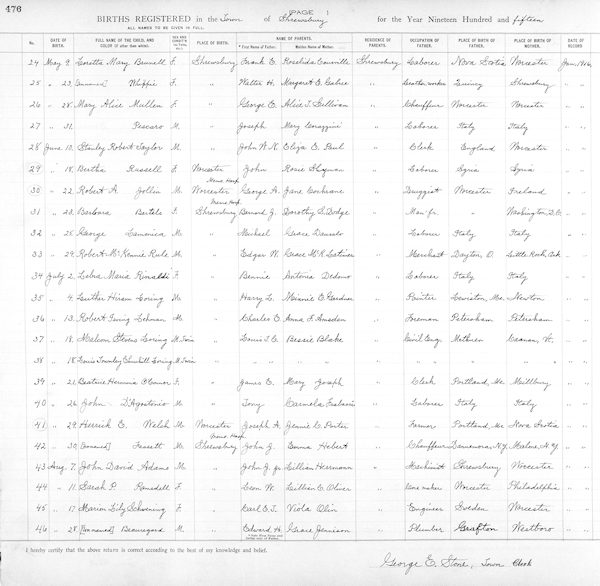 476
PAGE 1
BIRTHS REGISTERED in the Town of Shrewsbury for the Year Nineteen Hundred and fifteen
ALL NAMES TO BE GIVEN IN FULL.
No. DATE OF BIRTH. FULL NAME OF THE CHILD, AND COLOR (if other than white). PLACE OF BIRTH. NAME OF PARENTS. RESIDENCE OF PARENTS. OCCUPATION OF FATHER. PLACE OF BIRTH OF FATHER. PLACE OF BIRTH OF MOTHER. DATE OF RECORD
* First Name of Father. Maiden Name of Mother.
24 May 9 Loretta Mary Bunnell F. Shrewsbury Frank E. Roselida Shrewsbury Laborer Nova Scotia Worcester Jan. 1916
25 " 23 [unnamed] Whipple F. " Walter H. Margaret E. " Leather worker Quincy Shrewsbury " "
26 " 28 Mary Alice Mullen F. " George E. Alice T. Sullivan " Chauffeur Worcester Worcester " "
27 " 31 Pescaro M. " Joseph Mary " Laborer Italy Italy " "
28 June 10 Stanley Robert Taylor M. " John W. N. Eliza E. Paul " Clerk England Worcester " "
29 " 18 Bertha Russell F. Worcester John Rosie " Laborer Syria Syria " "
30 " 22 Robert A. Jollin M. Worcester Mem. Hosp. George H. Jane Cochrane " Druggist Worcester Ireland " "
31 " 23 Barbara Bertels F. Shrewsbury Bernard J. Dorothy S. Dodge " Man'fr. " Washington, D.C. " "
32 " 25 George Lamonica M. " Michael Grace " Laborer Italy Italy " "
33 " 29 Robert McKennie Rule M. " Edgar W. Grace McK. Latimer " Merchant Dayton, O. Little Rock, Ark. " "
34 July 2 Maria Rinaldi F. " Bennie Antonia " Laborer Italy Italy " "
35 " 4 Luther Hiram Loring M. " Harry L. Minnie E. Gardner " Painter Lewiston, Me. Newton " "
36 " 13 Robert Ewing Lehman M. " Charles E. Anna F. Amsden " Foreman Petersham Petersham " "
37 " 18 Malvern Stevens Loring M. Twin " Louis T. E. Bessie Blake " Civil Eng. Methuen Canaan, Vt. " "
38 " 18 Louis Townley Churchill Loring M. Twin " " " " " " " " "
39 " 21 Beatrice Hermina O'Connor F. " James E. Mary Joseph " Clerk Portland, Me. Millbury " "
40 " 26 John D'Agostino M. " Tony Carmela " Laborer Italy Italy " "
41 " 29 Herrick E. Welsh M. Worcester Mem. Hosp. Joseph A. Jennie E. Porter " Farmer Portland, Me. Nova Scotia " "
42 " 30 [unnamed] Fassett M. Shrewsbury John J. Emma Hebert " Chauffeur Dannemora, N.Y. Malone, N.Y. " "
43 Aug. 7 John David Adams M. " John J. Jr. Lillian Herrmann " Machinist Shrewsbury Worcester " "
44 " 11 Sarah P. Ramsdell F. " Leon W. Lillian E. Oliver " maker Worcester Philadelphia " "
45 " 17 Marion Lily Schwening F. " Karl E. J. Viola Olin " Engineer Sweden Worcester " "
46 " 28 [unnamed] Beauregard M. " Edward H. Grace Jennison " Plumber Grafton Westboro " "
I hereby certify that the above return is correct according to the best of my knowledge and belief.
George E. Stone, Town Clerk